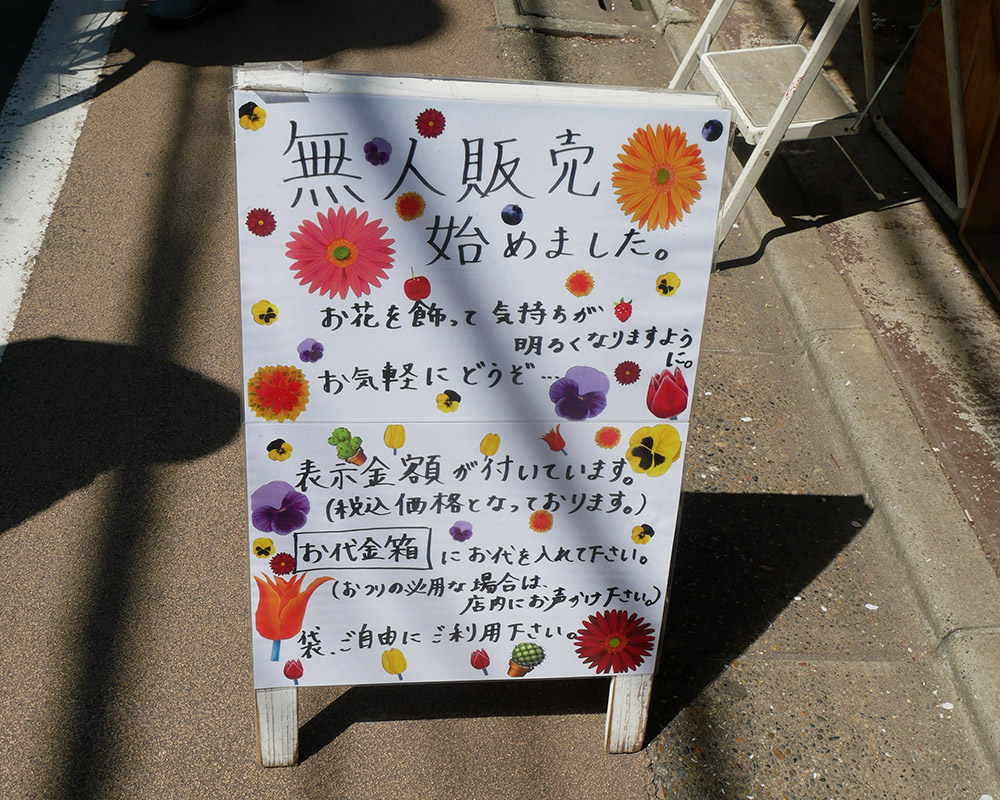 無人販売
始めました。
お花を飾って気持ちが
明るくなりますよう
に。
お気軽にどうぞ…
表示金額が付いています。
(税込価格となっております。)
お代金箱にお代を入れて下さい。
(おつりの必用な場合は、
店内にお声がけ下さい。)
袋、ご自由にご利用下さい。